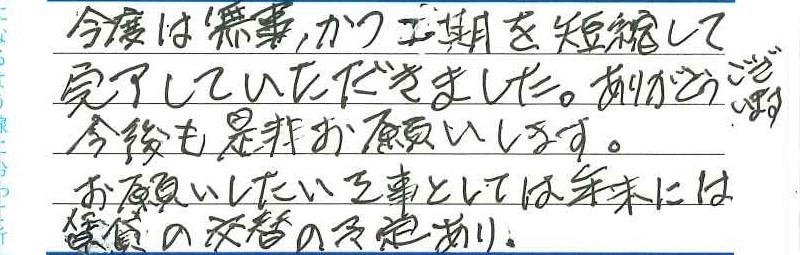 今度は無事,かつ工期を短縮して
完了していただきました。ありがとうございます
今後も是非お願いします。
お願いしたい工事としては年末には
賃貸の交替の予定あり.